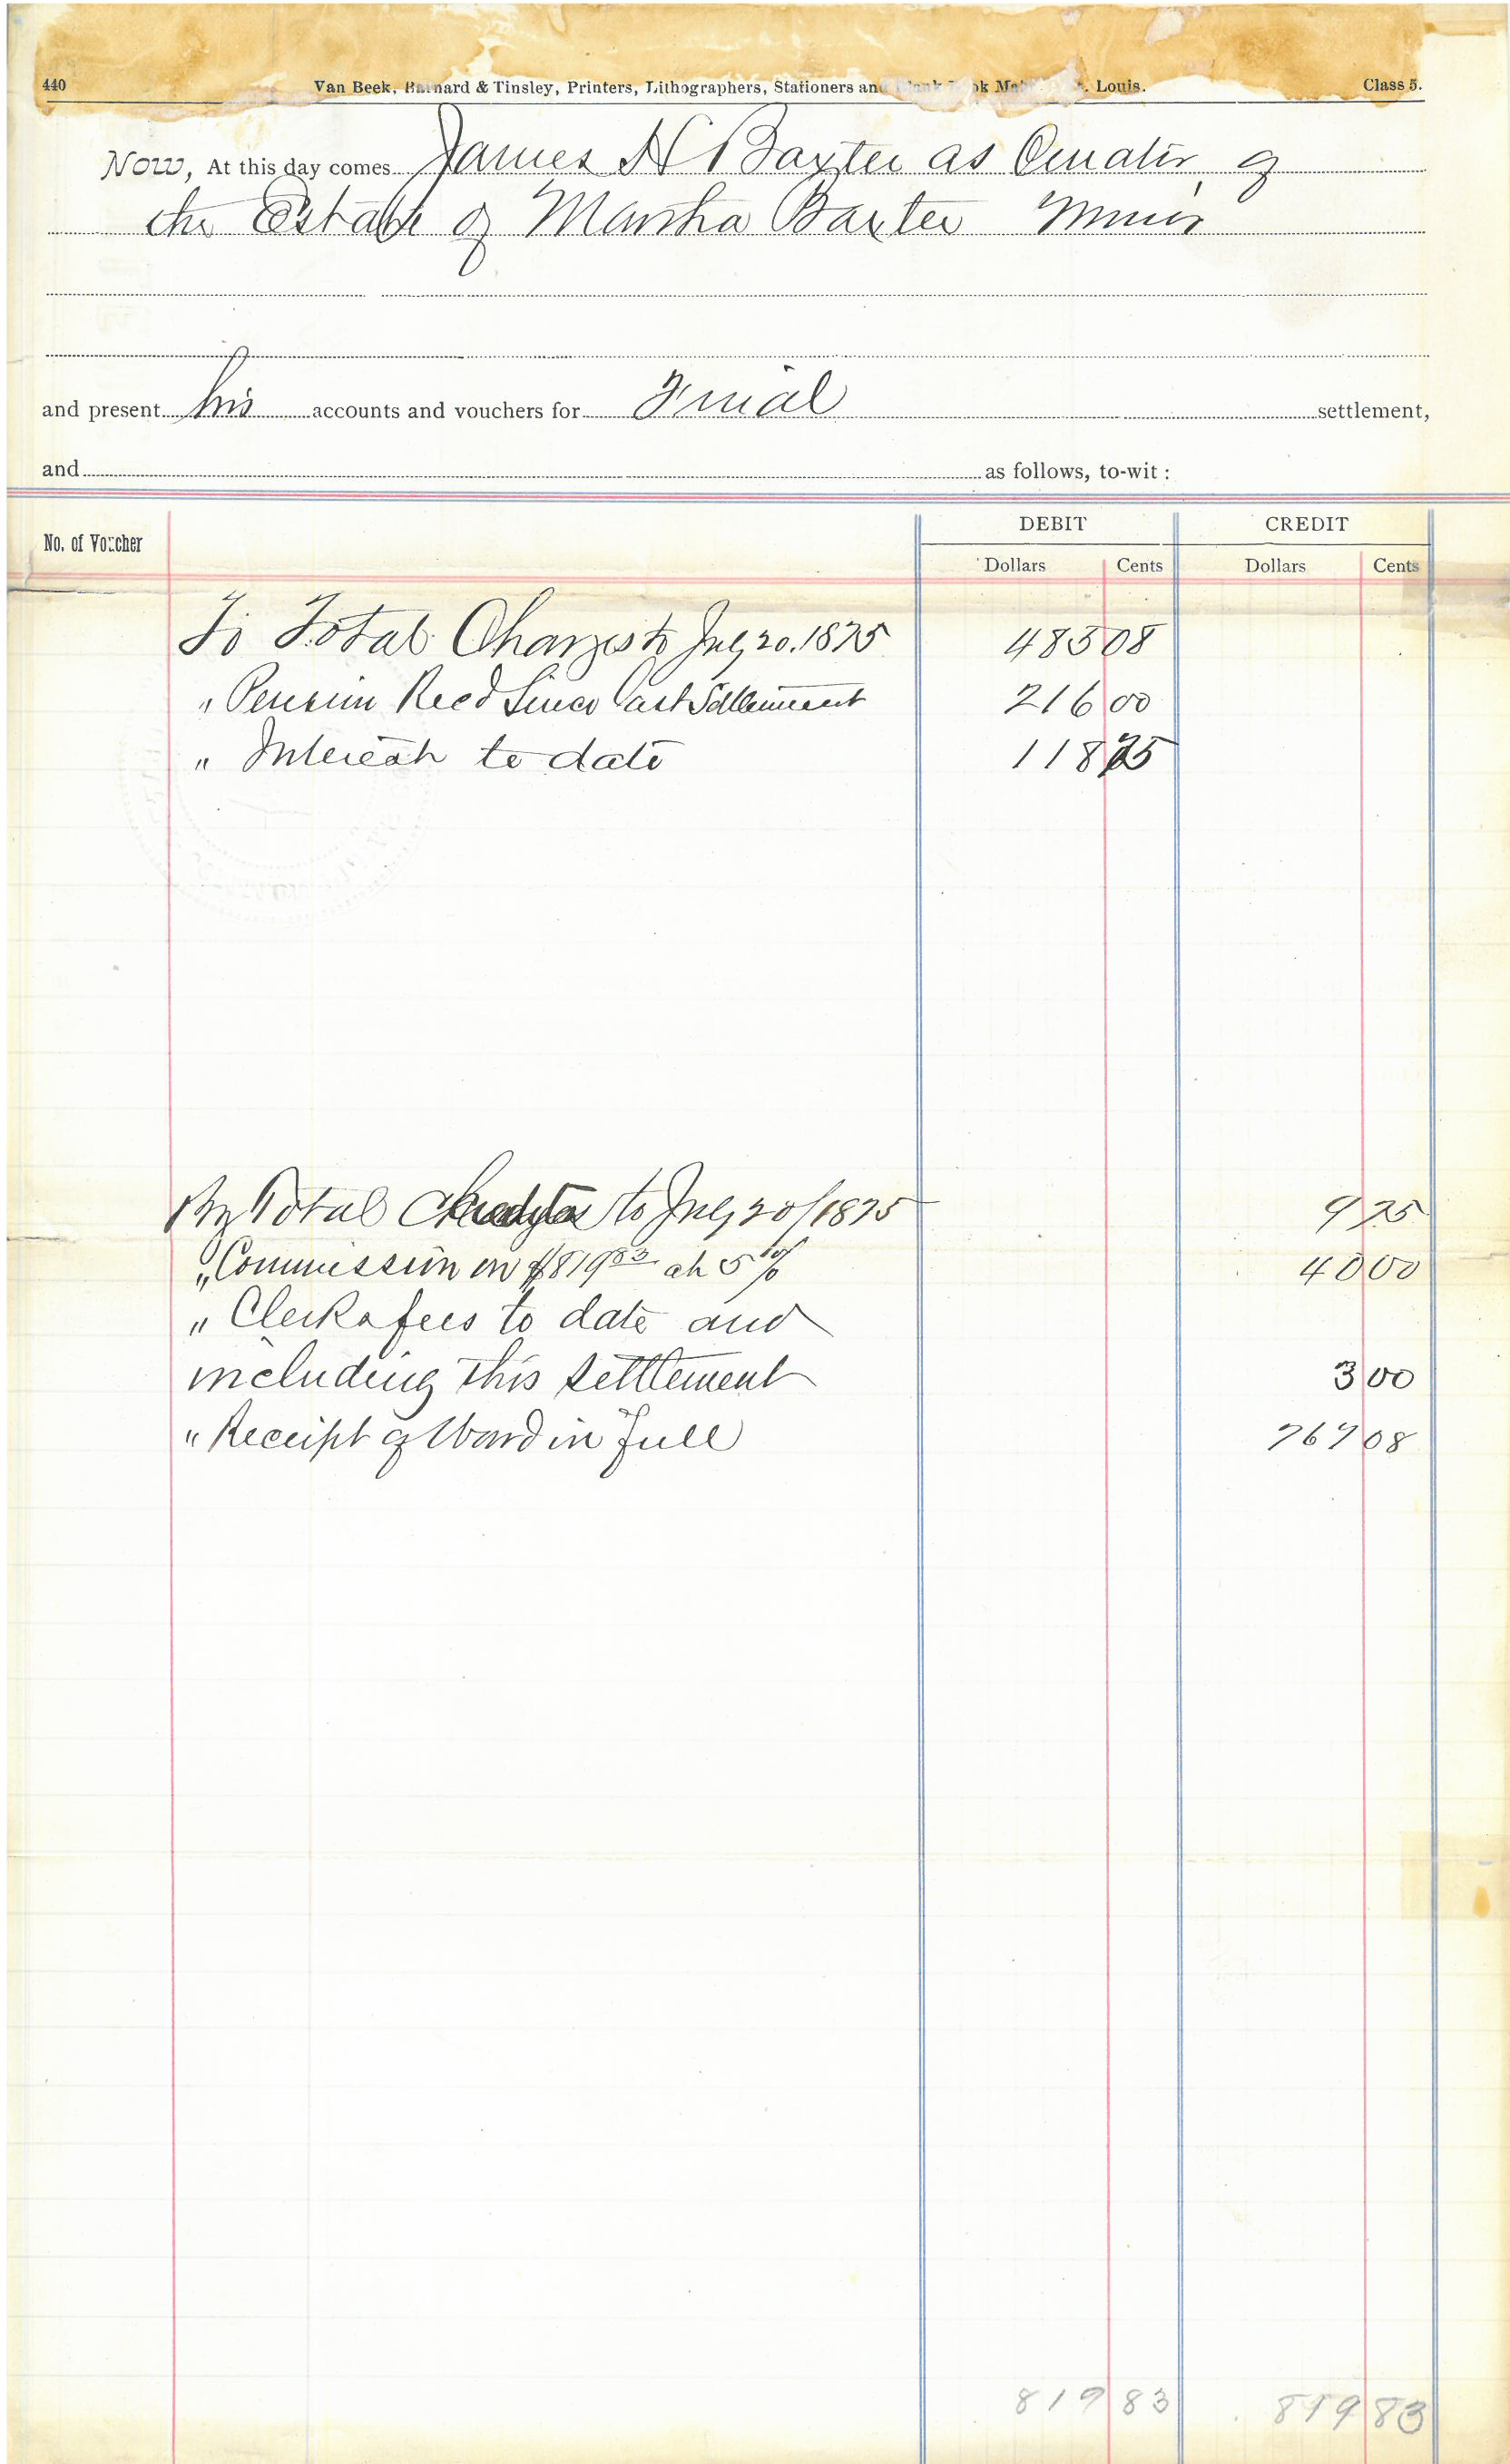 440 Van Beek, Barnard & Tinsley, Printers, Lithographers, Stationers and Louis. Class 5.
Now, At this day comes James N Baxter as Curator of
the Estate of Martha Baxter Minor
and present his accounts and vouchers for Final settlement,
and as follows, to-wit:
No. of Voucher DEBIT CREDIT
Dollars Cents Dollars Cents
To Total Charges to July 20. 1875 485 08
" Pension Recd Since last Settlement 216 00
" Interest to date 118 75
By Total Credits to July 20/1875 9 75
" Commission on $819 83 at 5% 40 00
" Clerks fees to date and
including this settlement 3 00
" Receipt of Ward in full 767 08
819 83 819 83